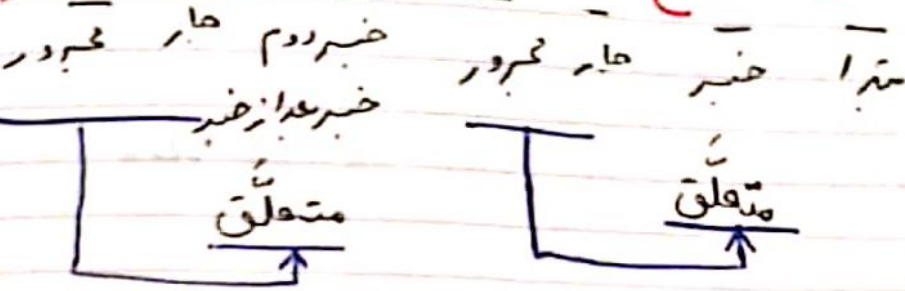 مبتدا خبر جار مجرور خبر دوم جار مجرور
خبر بعد از خبر
متعلَّق متعلَّق